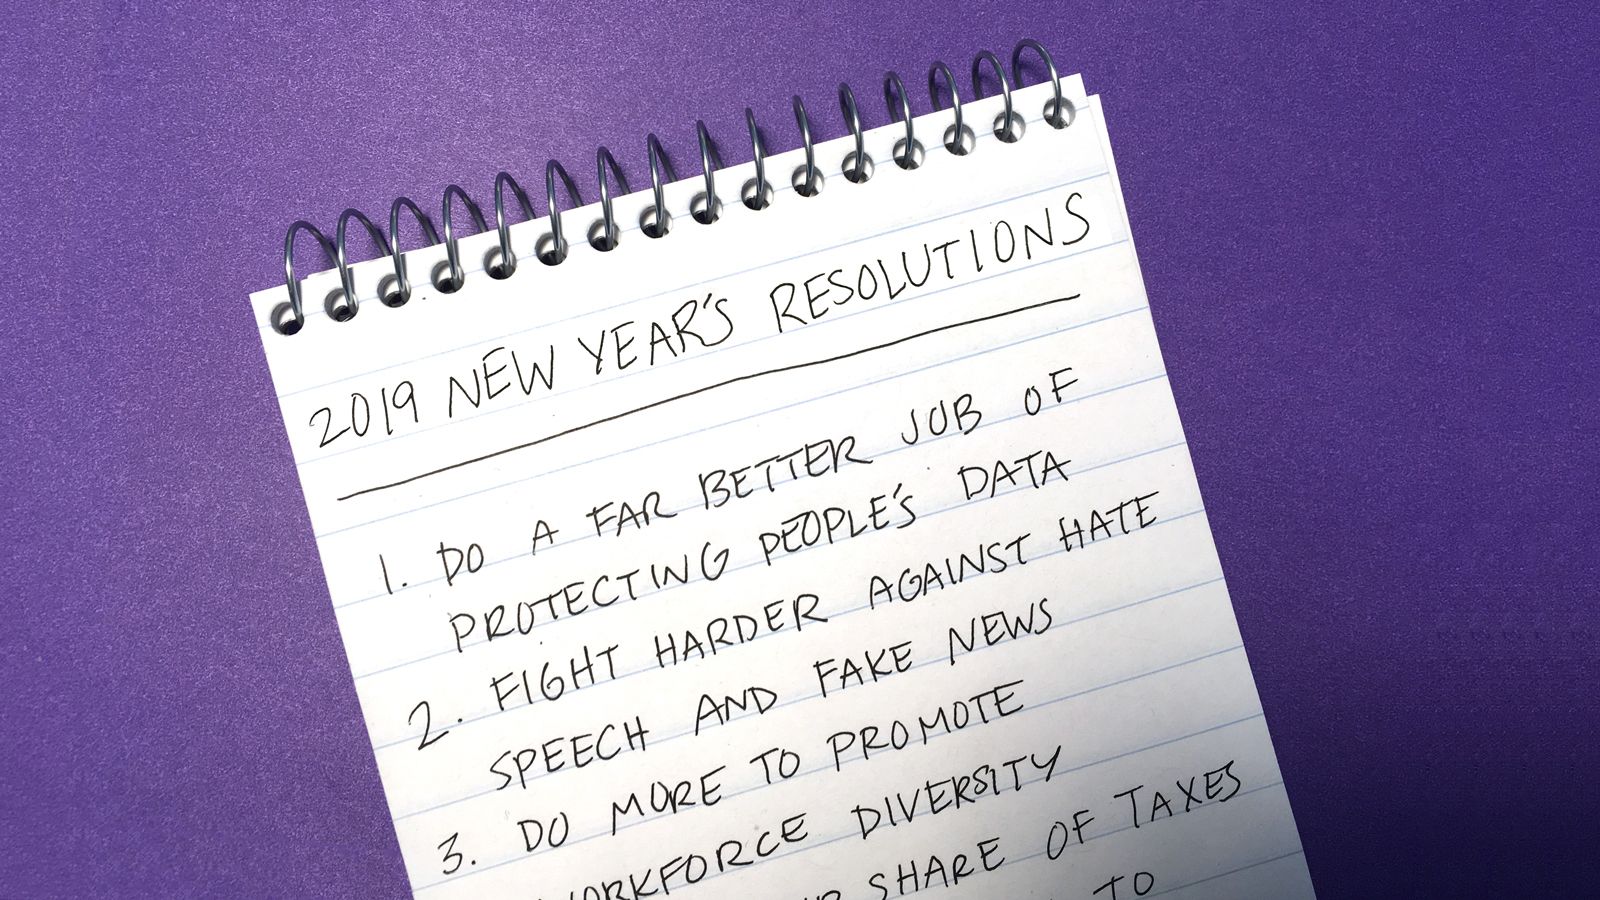 2019 NEW YEAR'S RESOLUTIONS
1. DO A FAR BETTER JOB OF
PROTECTING PEOPLE'S DATA
2. FIGHT HARDER AGAINST HATE
SPEECH AND FAKE NEWS
3. DO MORE TO PROMOTE
WORKFORCE DIVERSITY
SHARE OF TAXES
TO